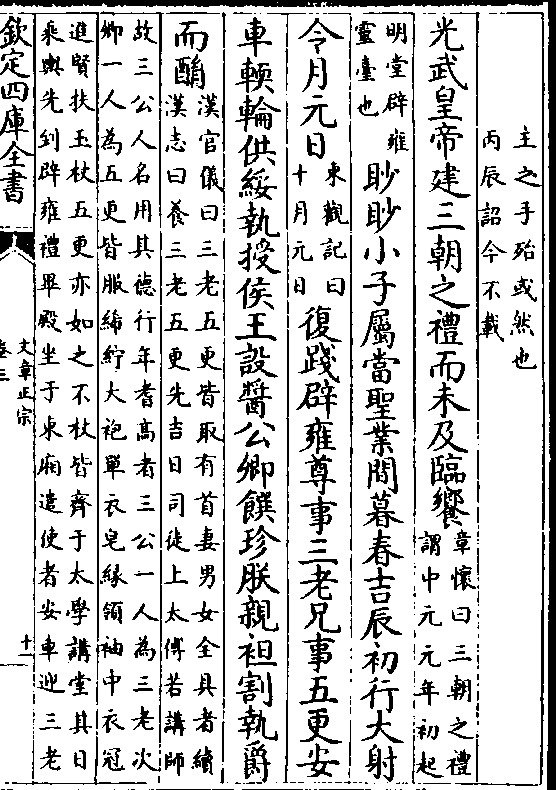 主之手殆或然也
丙辰詔今不載
光武皇帝建三朝之禮而未及臨饗
章懷曰三朝之禮
謂中元元年初起
明堂辟雍
靈臺也
眇眇小子屬當聖業閒暮春吉辰初行大射
令月元日
東觀記曰
十月元日
復踐辟雍尊事三老兄事五更安
車輭輪供綏執授侯王設醬公卿饌珍朕親袒割執爵
而酳
漢官儀曰三老五更皆取有首妻男女全具者續
漢志曰養三老五更先吉日司徒上太傅若講師
故三公人名用其德行年耆高者三公一人為三老次
卿一人為五更皆服絺紵大袍單衣皂緣領袖中衣冠
進賢扶玉杖五更亦如之不杖皆齊于太學講堂其日
乘輿先到辟雍禮畢殿坐于東廂遣使者安車迎三老
欽定四庫全書
文章正宗
卷三
十